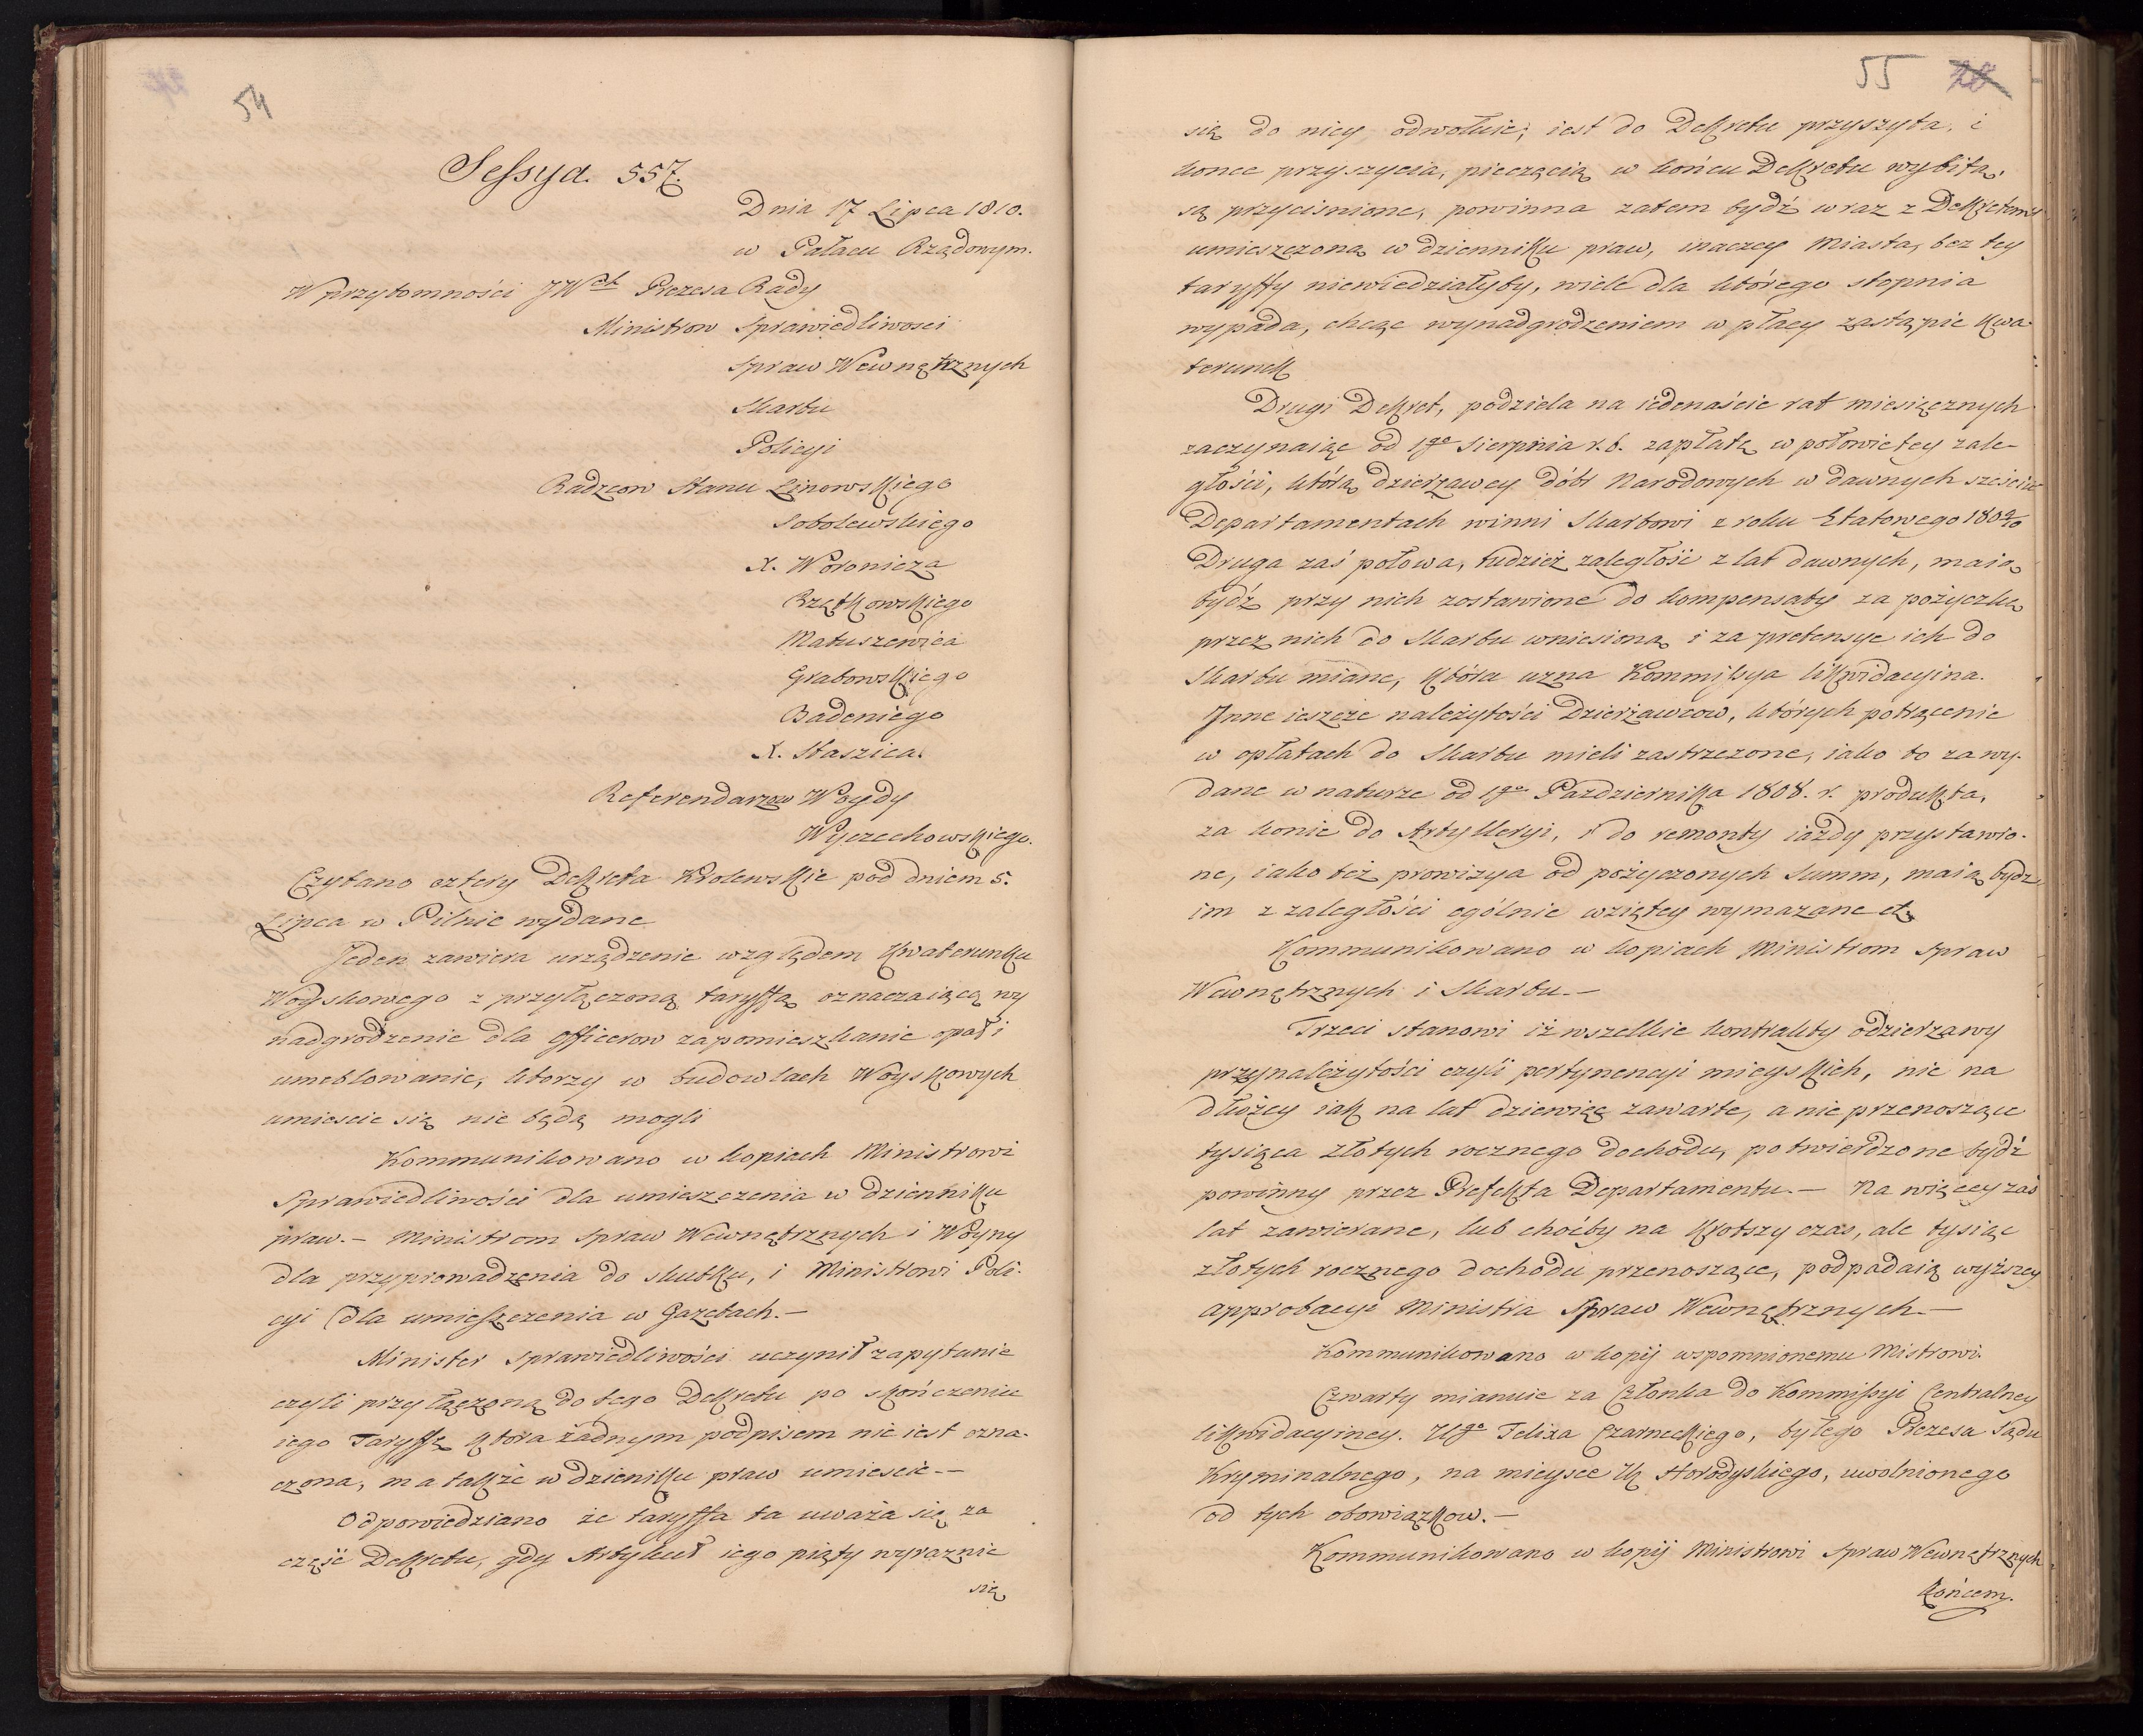 54
Sessya. 557.
Dnia 17 Lipca 1810.
w Pałacu Rządowym.
W przytomności JWch Prezesa Rady
Ministrow Sprawiedliwosci
Spraw Wewnętrznych
Skarbu
Policyi
Radzcow Stanu Linowskiego
Sobolewskiego
X. Woronicza
Rzętkowskiego
Matuszewica
Grabowskiego
Badeniego
X. Staszica.
Referendarzow Woydy
Wyczechowskiego.
Czytano cztery Dekreta Krolewskie pod dniem 5.
Lipca w Pilnie wydane
Jeden zawiera urządzenie względem Kwaterunku
Woyskowego z przyłączoną taryffą oznaczaiącą wy
nadgrodzenie dla officerow zapomieszkanie opał i
umeblowanie, ktorzy w budowlach Woyskowych
umiescic się nie będą mogli
Kommunikowano w kopiach Ministrowi
Sprawiedliwości dla umieszczenia w dzienniku
praw. — Ministrom Spraw Wewnętrznych i Woyny
dla przyprowadzenia do skutku, i Ministrowi Poli-
cyi dla umieszczenia w Gazetach. —
Minister Sprawiedliwości uczynił zapytanie
czyli przyłączoną do tego Dekretu po skończeniu
iego Taryffę ktora żadnym podpisem nie iest ozna-
czona, ma także w dzieniku praw umiescic —
Odpowiedziano że taryffa ta uważa się za
część Dekretu, gdy Artykuł iego piąty wyraznie
się
55
się do niey odwołuie, iest do Dekretu przyszyta, i
konce przyszycia, pieczęcią w końcu Dekretu wybitą,
są przyciśnione, powinna zatem bydź wraz z Dekretem
umieszczoną w dzienniku praw, inaczey Miasta, bez tey
taryffy niewiedziałyby, wiele dla którego stopnia
wypada, chcąc wynadgrodzeniem w płacy zastąpic kwa-
terunek
Drugi Dekret, podziela na iedenaście rat miesięcznych
zaczynaiąc od 1go Sierpnia r.b. zapłatę w połowie tey zale-
głości, którą dzierżawcy dóbr Narodowych w dawnych sześciu
Departamentach winni Skarbowi z roku Etatowego 1809/10
Druga zaś połowa, tudzież zaległość z lat dawnych, maią
bydź przy nich zostawione do kompensaty za pożyczkę
przez nich do Skarbu wniesioną i za pretensye ich do
Skarbu miane, które uzna Kommissya likwidacyina.
Jnne ieszcze należytości Dzierżawcow, których potrącenie
w opłatach do Skarbu mieli zastrzeżone, iako to za wy-
dane w naturze od 1go Pazdziernika 1808. r. produkta,
za konie do Artylleryi, i do remonty iazdy przystawio-
ne, iako też prowizya od pożyczonych Summ, maią bydz
im z zaległości ogólnie wziętey wymazane etc.
Kommunikowano w kopiach Ministrom Spraw
Wewnętrznych i Skarbu. —
Trzeci stanowi iż wszelkie kontrakty odzierzawy
przynależytości czyli pertynencyi mieyskich, nie na
dłużey iak na lat dziewięc zawarte, a nie przenoszące
tysiąca złotych rocznego dochodu, potwierdzone bydź
powinny przez Prefekta Departamentu. — Na więcey zaś
lat zawierane, lub choćby na krotszy czas, ale tysiąc
złotych rocznego dochodu przenoszące, podpadaią wyższey
approbacyi Ministra Spraw Wewnętrznych. —
Kommunikowano w kopij wspomnionemu Mistrowi.
Czwarty mianuie za Członka do Kommissyi Centralney
likwidacyiney. Ugo Felixa Czarneckiego, byłego Prezesa Sądu
Kryminalnego, na mieysce Horodyskiego, uwolnionego
od tych obowiązkow. —
Kommunikowano w kopij Ministrowi Spraw Wewnętrznych
Końcem.